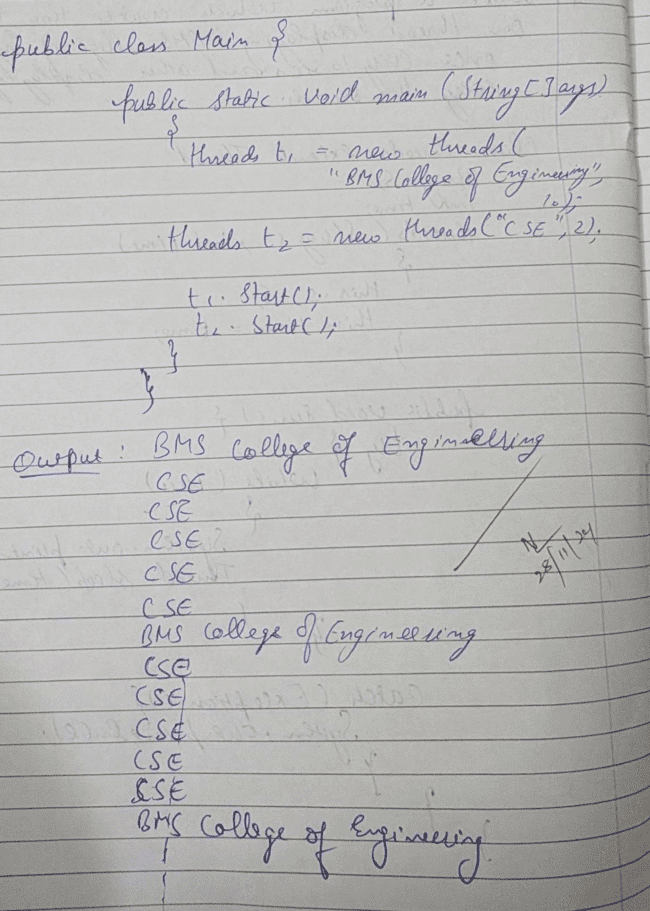 public class Main {
public static void main (String[] args)
{
threads t1 = new threads(
"BMS College of Engineering",
10);
threads t2 = new threads("CSE", 2);
t1. Start();
t2. Start();
}
}
Output: BMS College of Engineering
CSE
CSE
CSE
CSE
CSE
BMS College of Engineering
CSE
CSE
CSE
CSE
CSE
BMS College of Engineering
28/11/24